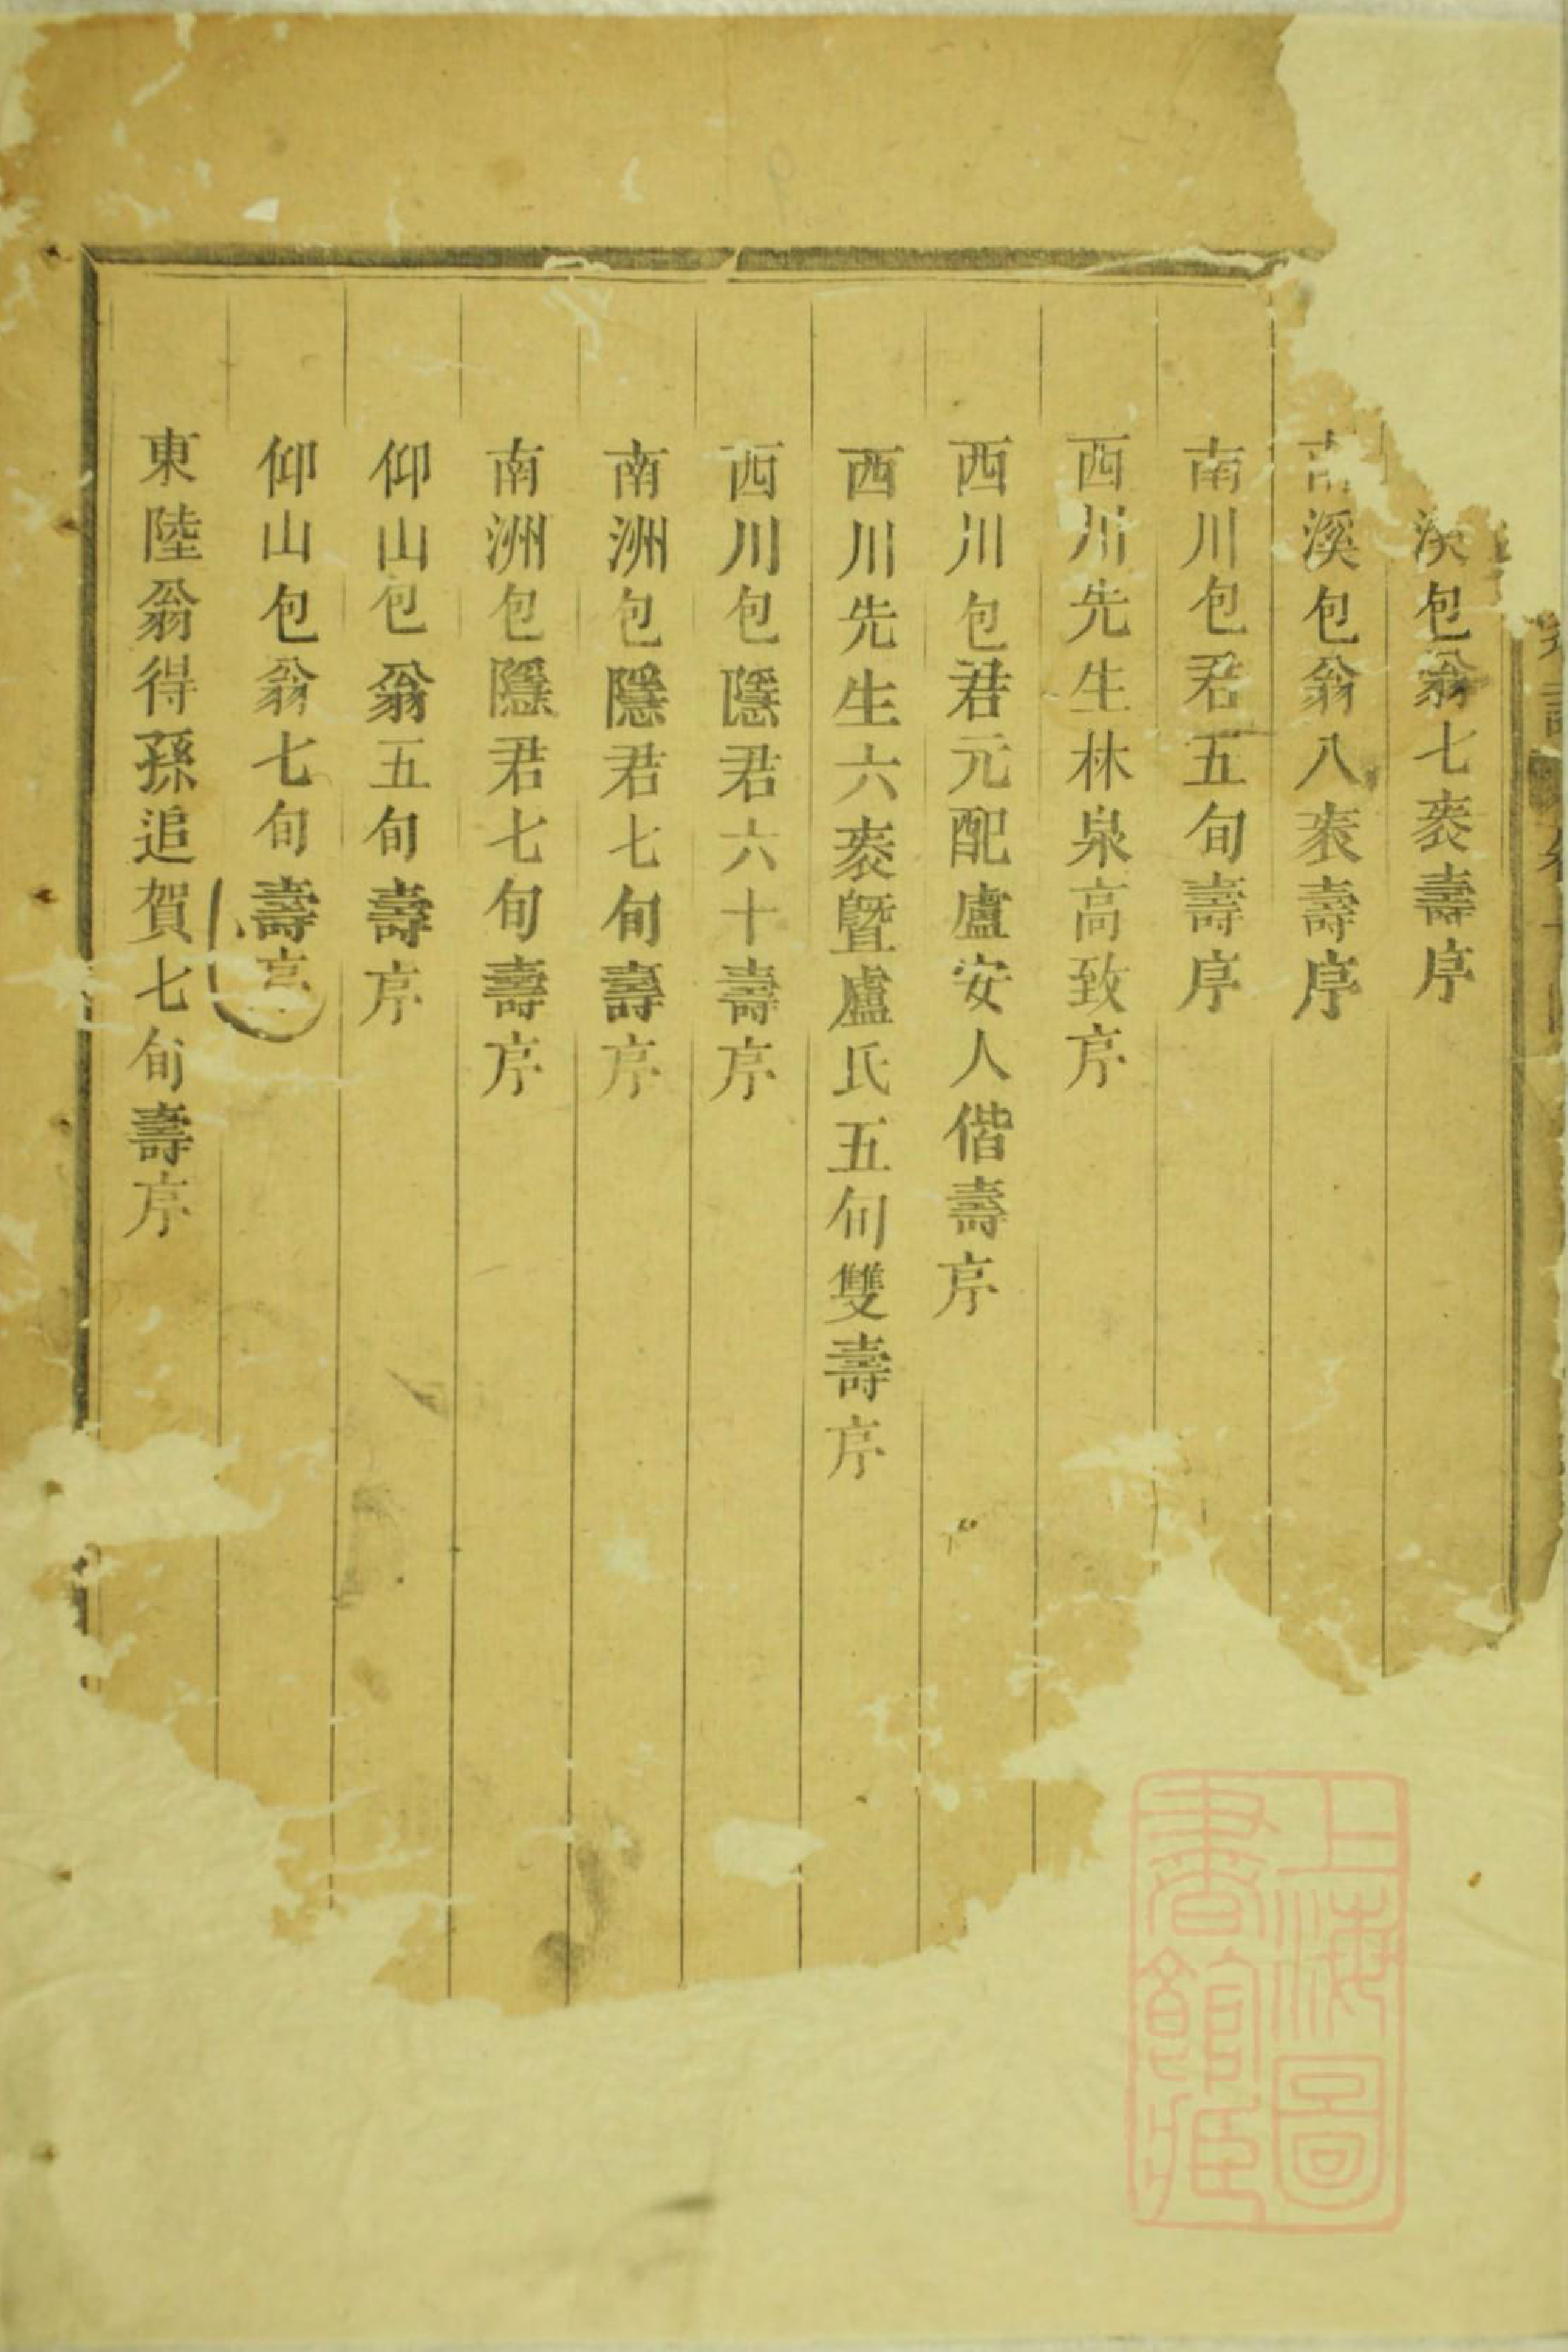 溪包翁七袠壽序
南溪包翁八袠壽序
南川包君五旬壽序
西川先生林泉高致序
西川包君元配盧安人偕壽序
西川先生六袠暨盧氏五旬雙壽序
西川包隱君六十壽序
南洲包隱君七旬壽序
南洲包隱君七旬壽序
仰山包翁五旬壽序
仰山包翁七旬壽序
東陸翁得孫追賀七旬壽序
上海圖
書館藏